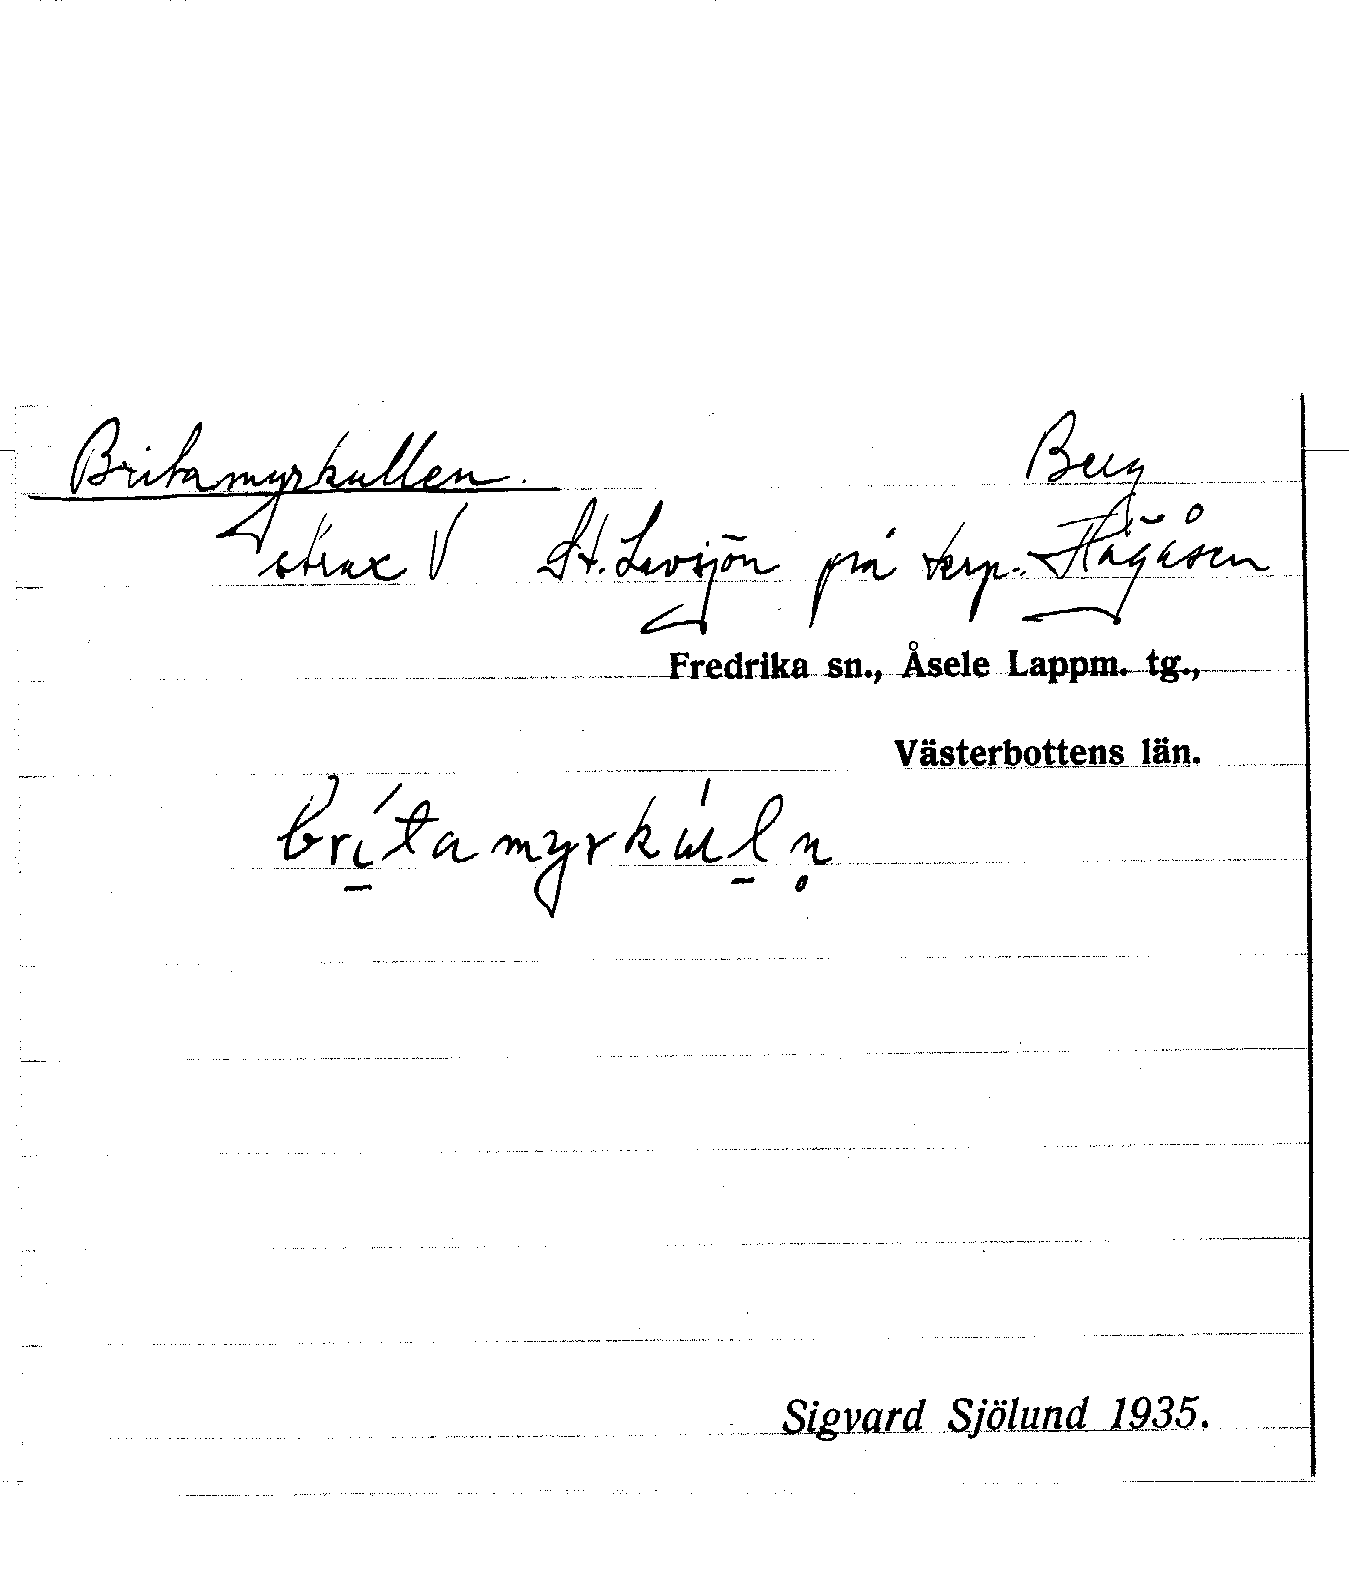 Britamyrkullen. Berg
strax V St. Lövsjön på terp. Hägåsen
Fredrika sn., Åsele Lappm. tg.,
Västerbottens län.
brítamyrkúl̠n̥
Sigvard Sjölund 1935.